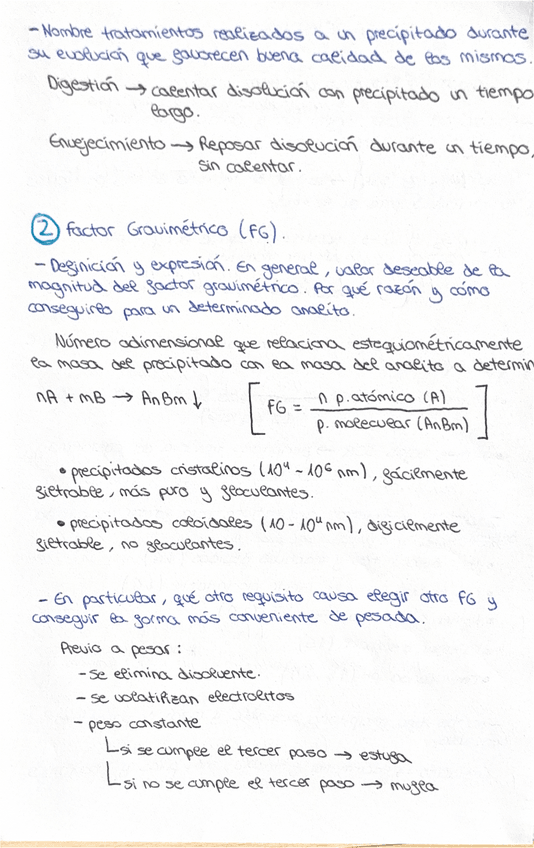 - Nombre tratamientos realizados a un precipitado durante
su evolución que favorecen buena calidad de los mismos.
Digestión → calentar disolución con precipitado un tiempo
largo.
Envejecimiento → Reposar disolución durante un tiempo,
sin calentar.
② Factor Gravimétrico (FG).
- Definición y expresión. En general, valor deseable de la
magnitud del factor gravimétrico. Por qué razón y cómo
conseguirlo para un determinado analito.
Número adimensional que relaciona estequiométricamente
la masa del precipitado con la masa del analito a determin
nA + mB → AnBm ↓ [FG = n p. atómico (A) / p. molecular (AnBm)]
• precipitados cristalinos (10⁴ - 10⁶ nm), fácilmente
filtrable, más puro y floculantes.
• precipitados coloidales (10 - 10⁴ nm), difícilmente
filtrable, no floculantes.
- En particular, qué otro requisito causa elegir otro FG y
conseguir la forma más conveniente de pesada.
Previo a pesar :
- se elimina disolvente.
- se volatilizan electrolitos
- peso constante
si se cumple el tercer paso → estufa
si no se cumple el tercer paso → mufla